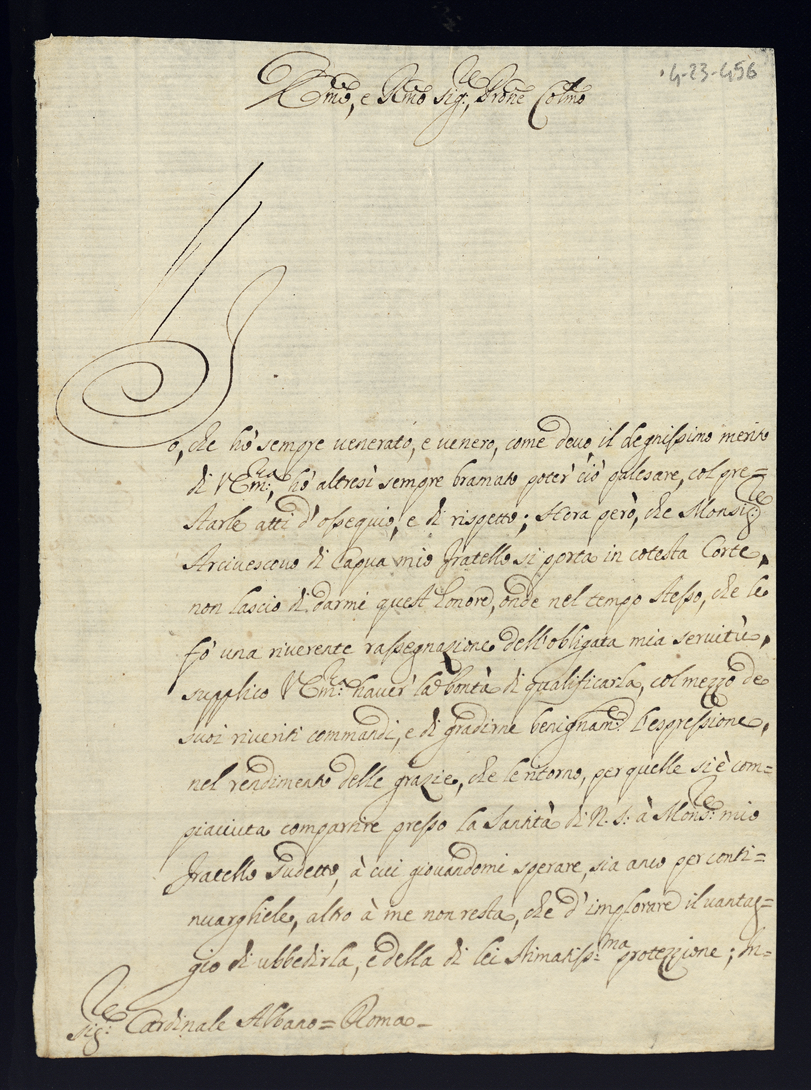 4-23-456
Emo, e Rmo Sigre, Prone Colmo
Io, che hò sempre venerato, e venero, come devo il degnissimo merito
di V Emza, hò altresì sempre bramato poter' ciò palesare, col pre=
starle atti d'ossequio, e di rispetto; Hora però, che Monsigre
Arcivescovo di Capua mio fratello si porta in cotesta Corte,
non lascio di darmi quest'honore, onde nel tempo stesso, che le
fò una riverente rassegnazione dell'obligata mia servitù,
supplico V Emza haver' la bontà di qualificarla, col mezzo de
suoi riveriti commandi, e di gradirne benignamte l'espressione,
nel rendimento delle grazie, che le ritorno, per quelle si è com=
piaciuta compartire presso la Santità di N. S. à Monsre mio
fratello sudetto, à cui giovandomi sperare, sia anco per conti=
nuarghiele, altro à me non resta, che d'implorare il vantag=
gio di ubbedirla, e della di lei stimatissma protezzione; in=
Sigre Cardinale Albano = Roma